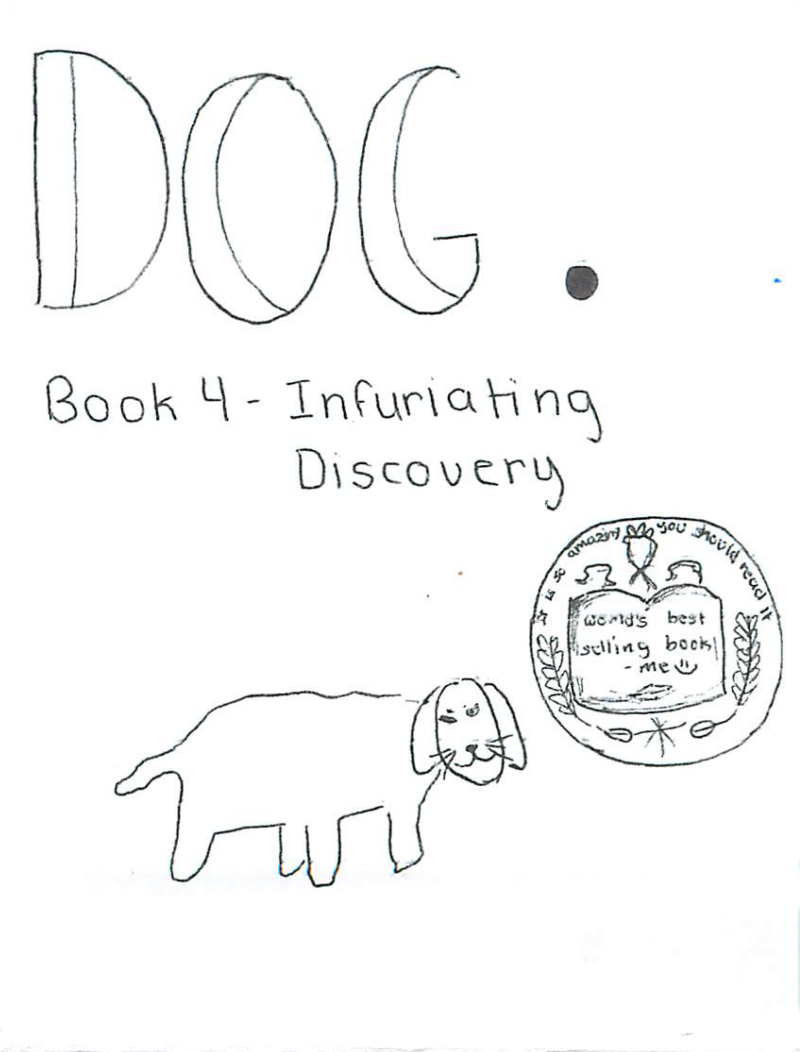 DOG.
Book 4 - Infuriating
Discovery
It is so amazing you should read it
world's best
selling book
- me